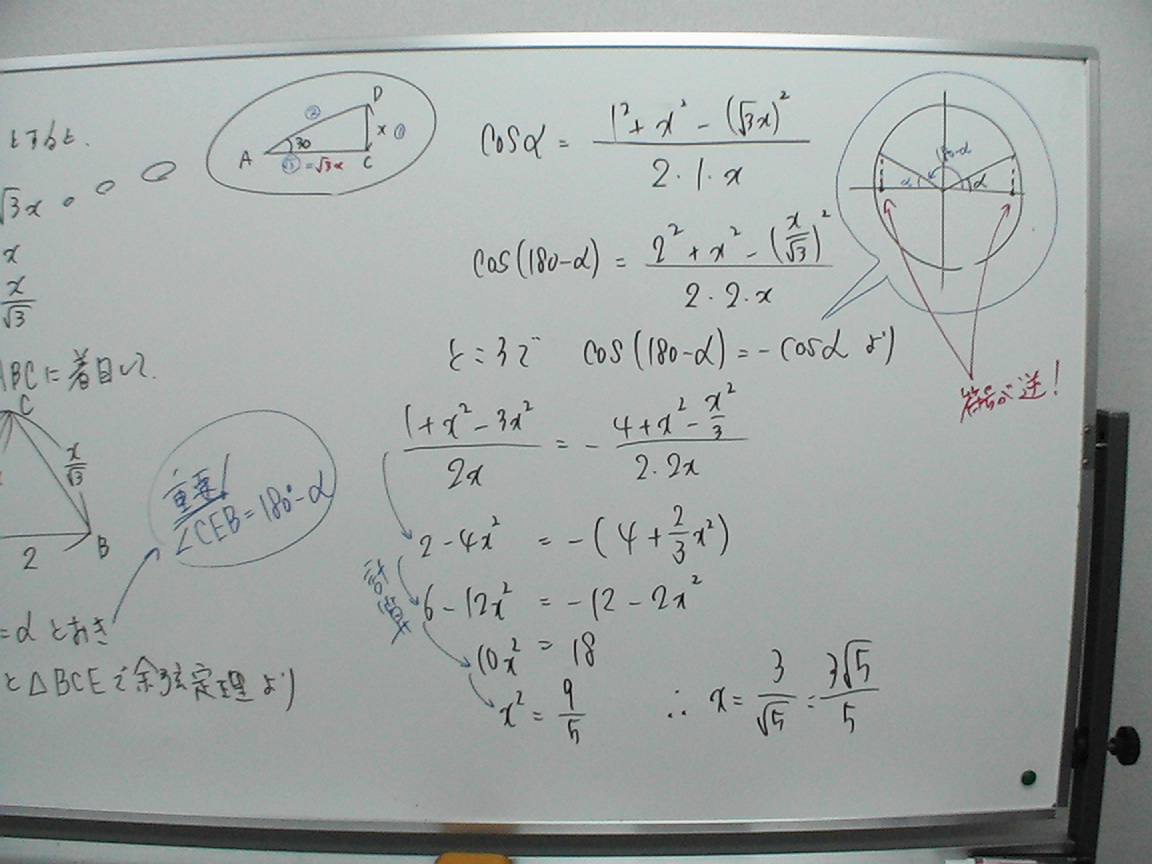 とすると.
√3x
x
x/√3
ABCに着目して.
C
x/√3
2
B
重要!
∠CEB=180°-α
=αとおき
と△BCEで余弦定理より
D
②
30
x ①
A
=√3x
C
cosα = (1²+x²-(√3x)²)/(2・1・x)
cos(180-α) = (2²+x²-(x/√3)²)/(2・2・x)
ところで cos(180-α)=-cosα より
(1+x²-3x²)/(2x) = -(4+x²-x²/3)/(2・2x)
2-4x² = -(4+(2/3)x²)
計算
6-12x² = -12-2x²
10x² = 18
x² = 9/5 ∴ x= 3/√5 = 3√5/5
180-α
α
α
符号が逆!